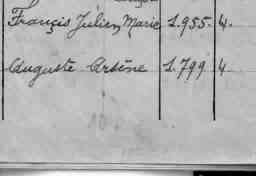 François Julien Marie 1.955. 4.
Auguste Arsène 1.799 4